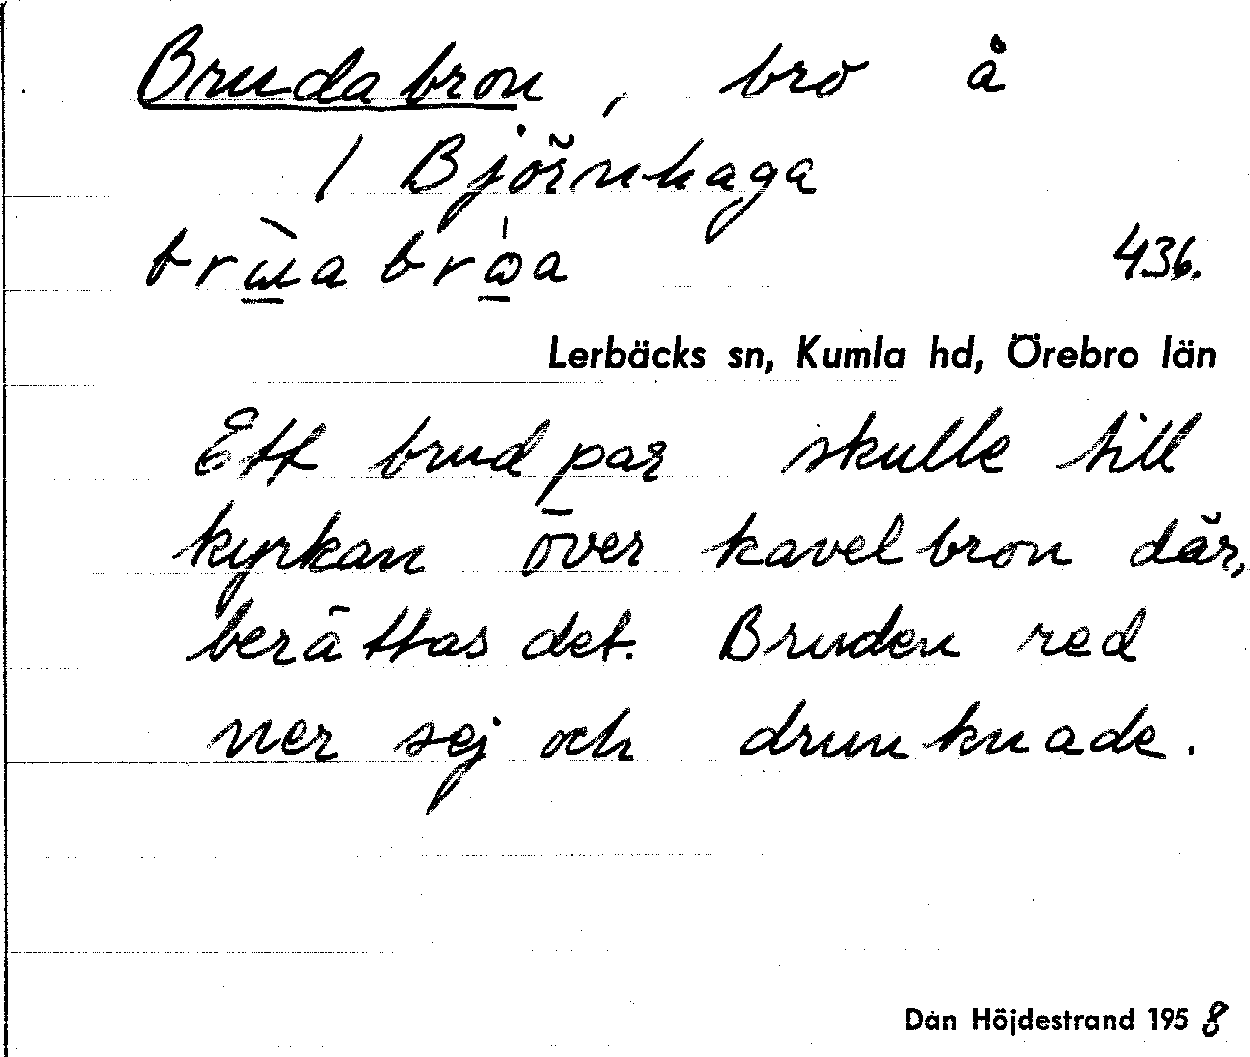 Brudabron, bro å
/ Björnhaga
brɯ̀a brѡ́a
436.
Lerbäcks sn, Kumla hd, Örebro län
Ett brudpar skulle till
kyrkan över kavelbron där,
berättas det. Bruden red
ner sej och drunknade.
Dan Höjdestrand 1958